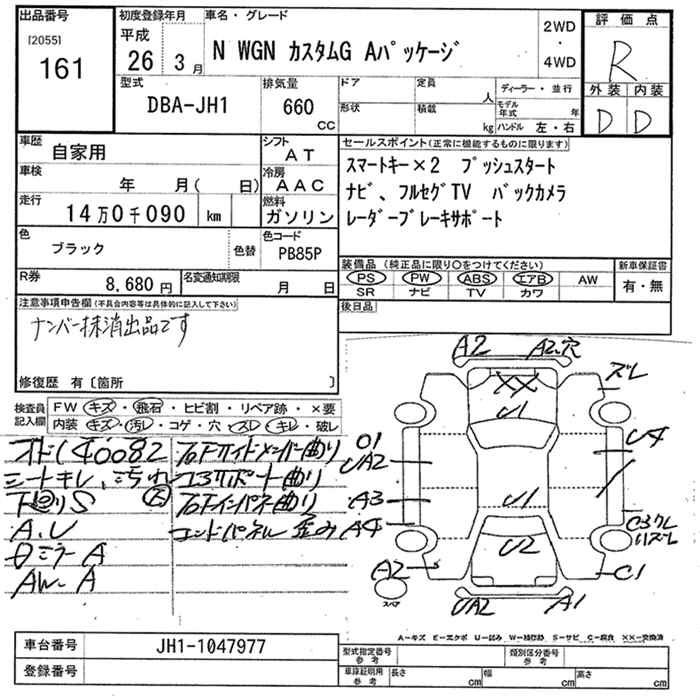 出品番号
[2055]
161
初度登録年月
平成
26 3月
車名・グレード
N WGN カスタムG Aパッケージ
2WD
・
4WD
評価点
R
外装 内装
D D
型式
DBA-JH1
排気量
660
CC
ドア
形状
定員
人
積載
kg
ディーラー・並行
モデル年式 年
ハンドル 左・右
車歴
自家用
シフト
AT
車検
年 月( 日)
冷房
AAC
走行
14万0千090 km
燃料
ガソリン
色
ブラック
色替
色コード
PB85P
R券
8,680円
名変通知期限
月 日
セールスポイント(正常に機能するものに限ります)
スマートキー×2 プッシュスタート
ナビ、フルセグTV バックカメラ
レーダーブレーキサポート
装備品(純正品に限り○をつけてください)
PS PW ABS エアB AW
SR ナビ TV カワ
新車保証書
有・無
後日品
注意事項申告欄(不具合内容等は具体的に記入して下さい)
ナンバー抹消出品です
修復歴 有〔箇所 〕
検査員記入欄
FW キズ・飛石・ヒビ割・リペア跡・×要
内装 キズ・汚レ・コゲ・穴・スレ・キレ・破レ
オド140082
シートキレ、汚れ
A.U
Dミラー A
AW-A
右Fサイドメンバー曲り
コアサポート曲り
右Fインパネ曲り
エンドパネル 歪み
A2
A2、穴
ズレ
XX
U1
01
UA2
U4
A3
U1
A4
U2
A2
C1
UA2
A1
スペア
A-キズ E-エクボ U-凹み W-補修跡 S-サビ C-腐食 XX-交換済
車台番号
JH1-1047977
登録番号
型式指定番号
参考
類別区分番号
参考
車庫証明用
参考
長さ cm
幅 cm
高さ cm